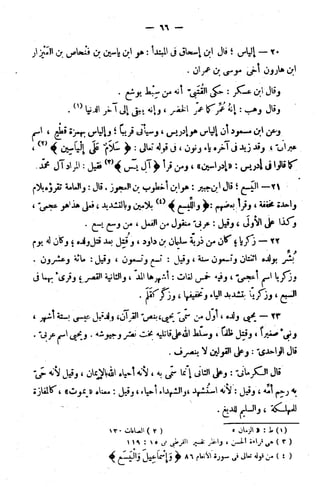 — ٦٦ —
٢٠ — إلياس ؛ قال ابن إسحاق فى المبتدأ : هو ابن ياسين بن فنحاص بن العيزار
ابن هارون أخى موسى بن عمران .
وقال ابن عسكر : حكى القتبىّ أنه من سِبْط يوشع .
وقال وهب : إنّه عُمّر كما عمّر الخضر ، وإنه يبقى إلى آخر الدنيا (١) .
وعن ابن مسعود أن إلياس هو إدريس ، وسيأتى قريبًا ؛ وإلياس بهمزة قطع ، اسم
عبرانىّ ، وقد زيد فى آخره ياء ونون ، فى قوله تعالى : ﴿ سَلَامٌ عَلَى إِلْيَاسِينَ ﴾ (٢) ،
كما قالوا فى إدريس : «إدراسين» ، ومن قرأ ﴿ آلِ يَس ﴾ (٣) فقيل : المراد آل محمّد .
٢١ — اليسع ؛ قال ابن جبير : هو ابن أخطوب بن العجوز . قال : والعامة تقرؤه بلام
واحدة مخففة ، وقرأ بعضهم : ﴿ واللَّيْسَع ﴾ (٤) بلامين وبالتشديد ، فعلى هذا هو عجمىّ ،
وكذا على الأولى ، وقيل : عربىّ منقول من الفعل ، من وسع يسع .
٢٢ — زكريا ؛ كان من ذرّية سليمان بن داود ، وقُتِل بعد قتل ولده ؛ وكان له يوم
بُشّر بولده اثنتان وتسعون سنة ، وقيل : تسع وتسعون ، وقيل : مائة وعشرون .
وزكريا اسم أعجمىّ ، وفيه خمس لغات : أشهرها المدّ ، والثانية القصر ؛ وقرئ بهما فى
السبع ، وزكريّ بتشديد الياء وتخفيفها ، وزكَر كقلم .
٢٣ — يحيى ولده ، أوّل من سُمِّىَ يحيى، بنص القرآن، ولد قبل عيسى بستة أشهر ،
ونبّئ صغيراً ، وقتِل ظلمًا ، وسلّط الله على قاتليه بخت نصّر وجيوشه . ويحيى اسم عربىّ .
قال الواحدىّ : وعلى القولين لا ينصرف .
قال الكرمانىّ : وعلى الثانى إنما سمِّى به ، لأنه أحياه الله بالإيمان ، وقيل لأنه حىَ
به رحِم أمّه ، وقيل : لأنه استُشهد ، والشهداء أحياء ، وقيل : معناه «يموت» ، كالمفازة
للمهلكة ، والسليم للديغ .
(١) ط : « الزمان » (٢) الصافات ١٣٠
(٣) هى قراءة الحسن ، وانظر تفسير القرطبى ١٥ : ١١٩
(٤) من قوله تعالى فى سورة الأنعام ٨٦ ﴿ وَإِسْمَاعِيلَ وَالْيَسَعَ ﴾